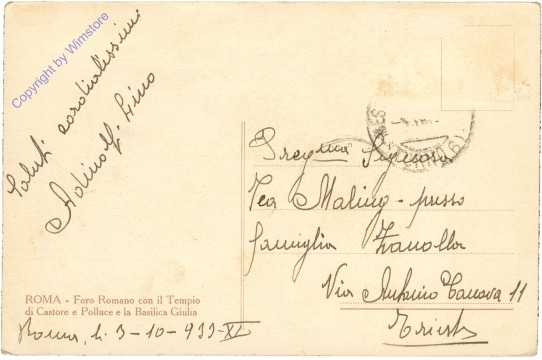 Copyright by Wimstore
Saluti cordialissimi
Adinolfi Lino
ROMA - Foro Romano con il Tempio
di Castore e Polluce e la Basilica Giulia
Roma, li 3-10-933-XI
Preg.ma Signora
Tea Malino - presso
famiglia Zanolla
Via Antonio Canova 11
Trieste